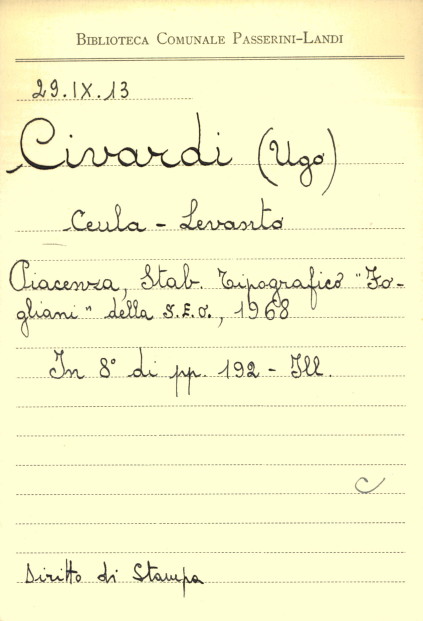 BIBLIOTECA COMUNALE PASSERINI-LANDI
29.IX.13
Civardi (Ugo)
Ceula - Levanto
Piacenza, Stab. Tipografico "Fo-
gliani" della S.E.O., 1968
In 8° di pp. 192 - Ill.
C
Diritto di Stampa